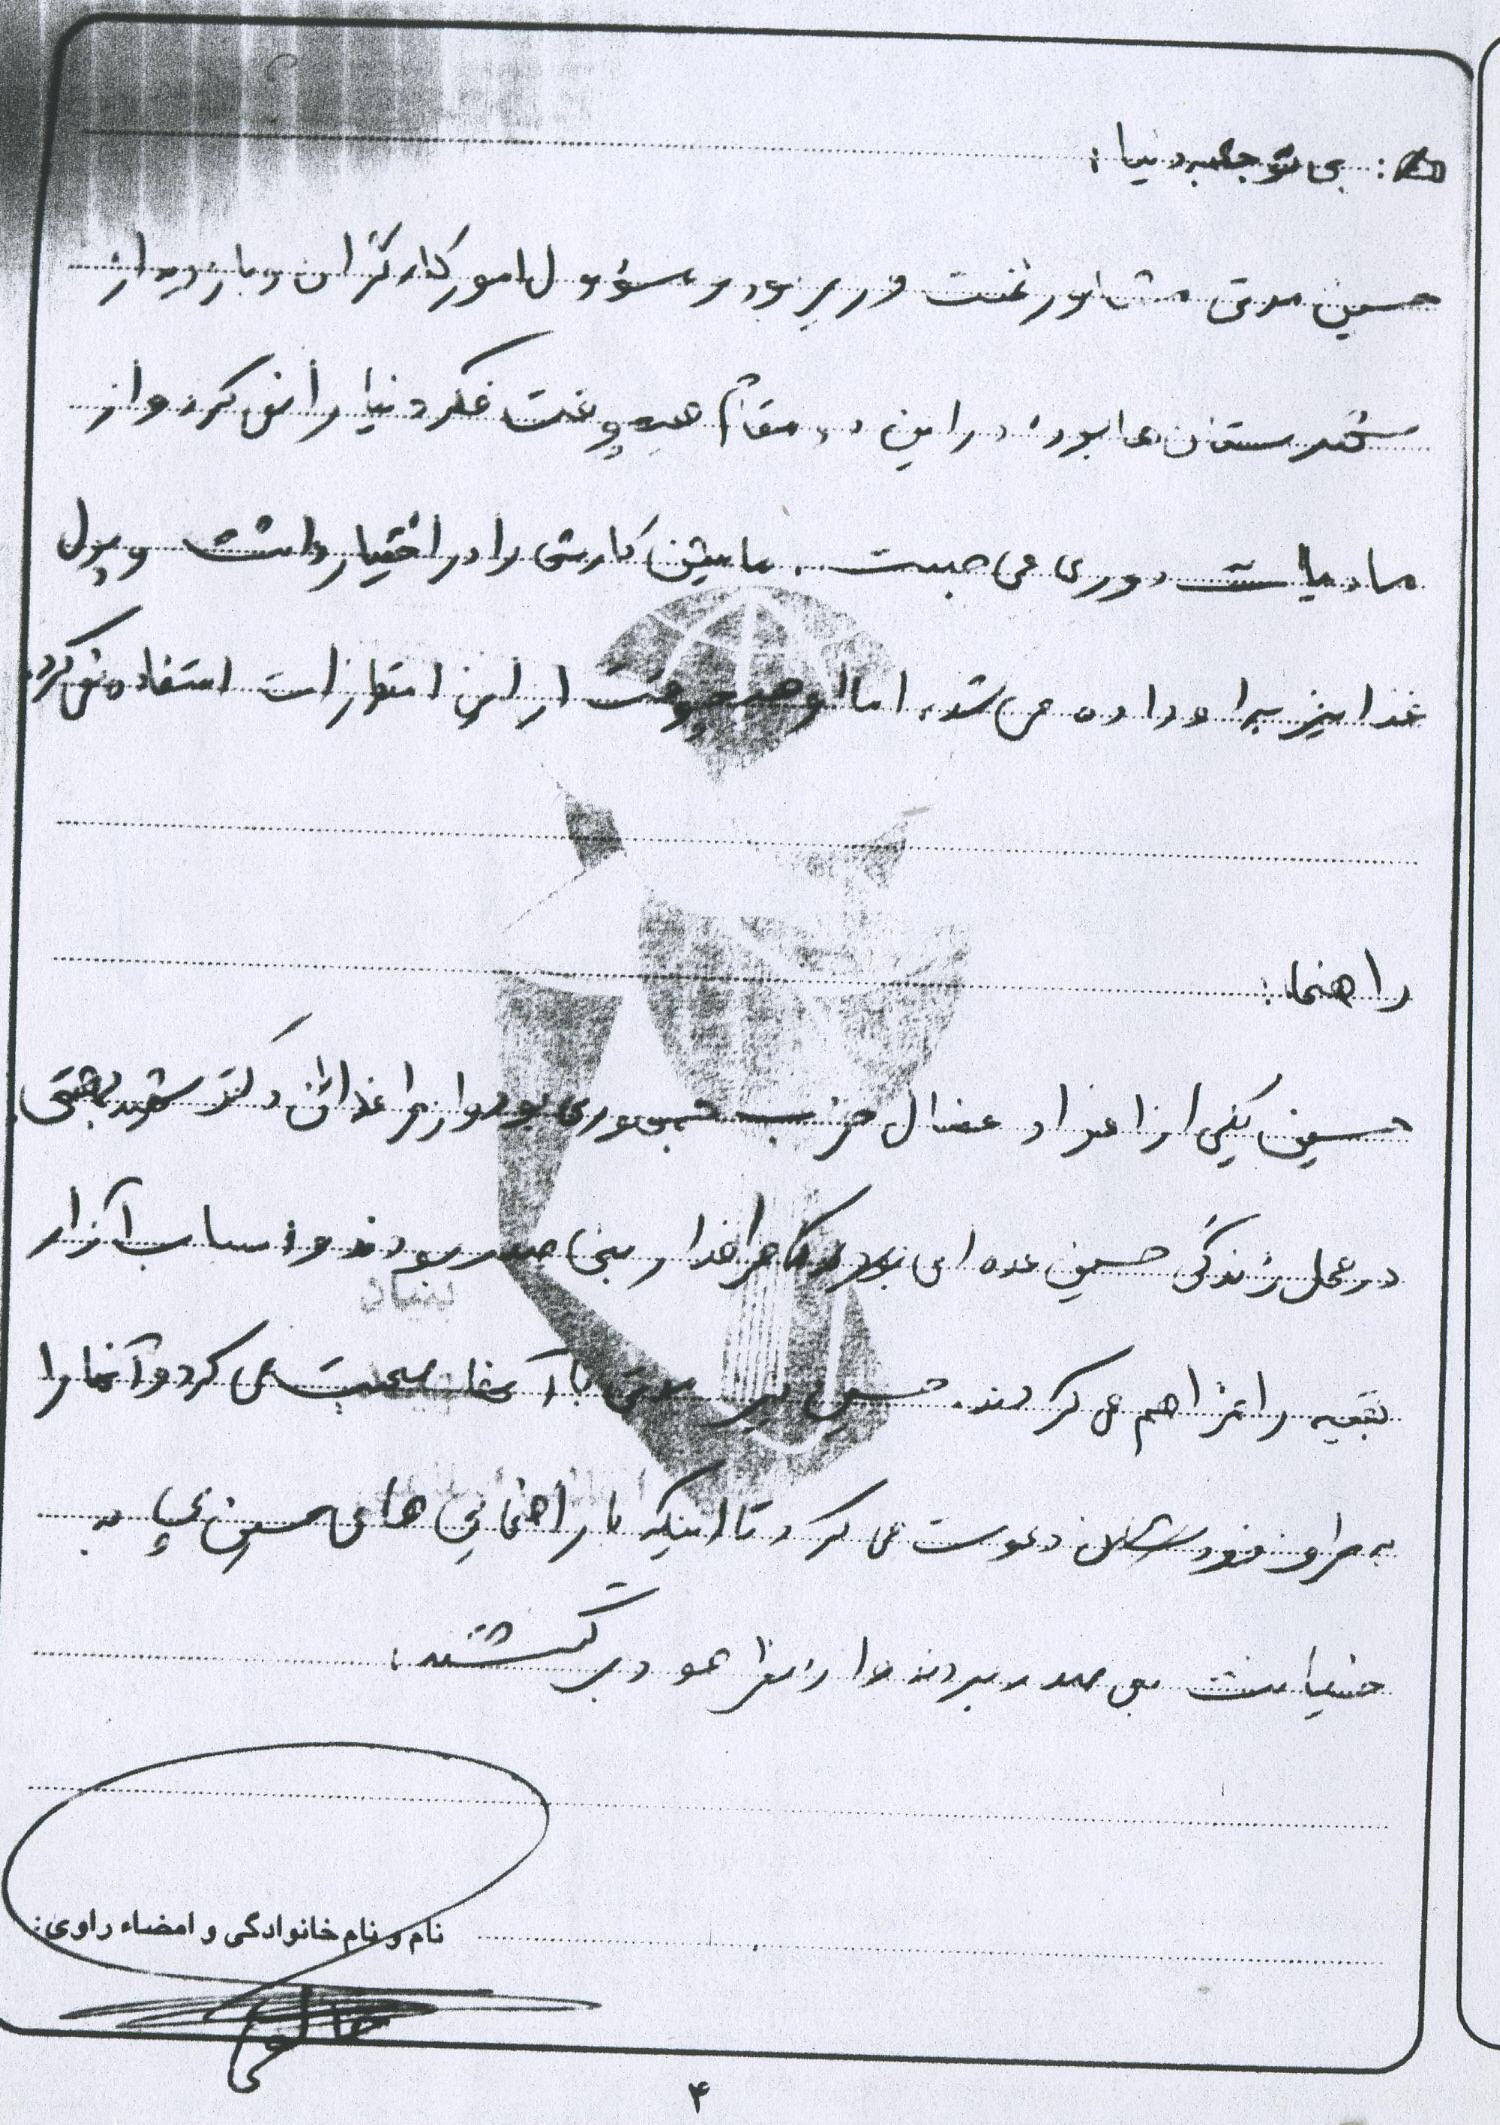 : بی توجه به دنیا:
حسین مدتی مشاور نخست وزیر بود و مسؤول امور کارگزان و بازدید از
شهرستان ها بود، در این دو مقام هیچ وقت فکر دنیا را نمی کرد و از
مادیات دوری می جست. ماشین کارشی را در اختیار داشت و پول
غذا نیز به او داده می شد، اما او هیچ وقت از این امتیازات استفاده نمی کرد.
راهنما:
حسین یکی از اعضای فعال حزب جمهوری بود و از طرفداران دکتر شهید بهشتی.
در محل زندگی حسین عده ای بودند که طرفدار بنی صدر بودند و اسباب آزار
بقیه را فراهم می کردند. حسین نیز مدتی با آنها صحبت می کرد و آنها را
به طرف خودشان دعوت می کرد تا اینکه با راهنمایی های حسین آنها به
خیانت بنی صدر پی بردند و از نظر خود برگشتند.
بنیاد
نام و نام خانوادگی و امضاء راوی:
۴